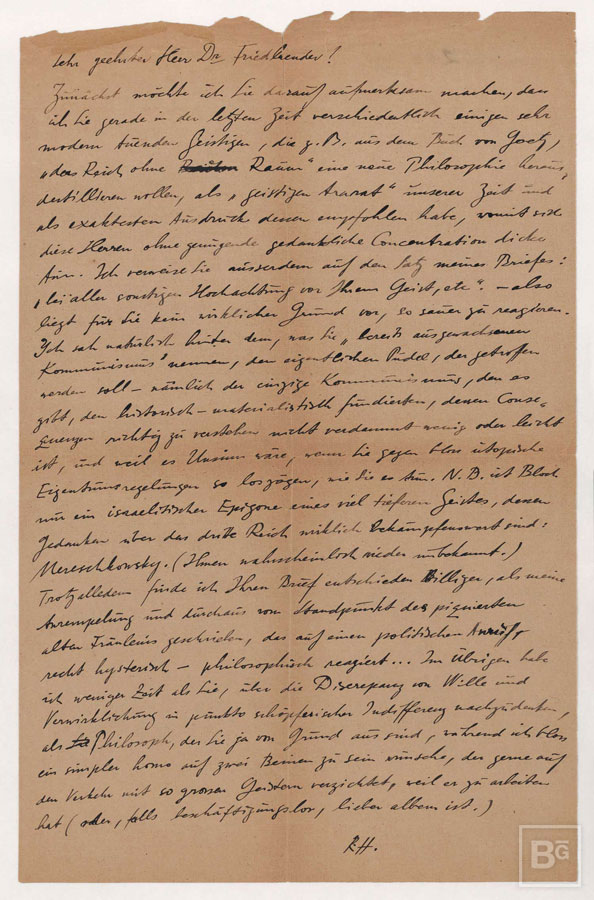 Sehr geehrter Herr Dr Friedlaender!
Zunächst möchte ich Sie darauf aufmerksam machen, dass
ich Sie gerade in der letzten Zeit verschiedentlich einigen sehr
modern tuenden Geistigen, die z.B. aus dem Buch von Goetz,
„das Reich ohne Raum" eine neue Philosophie heraus
destillieren wollen, als „geistigen Ararat" unserer Zeit und
als exaktesten Ausdruck dessen empfohlen habe, womit sich
diese Herren ohne genügende gedankliche Concentration dicke
tun. Ich verweise Sie ausserdem auf den Satz meines Briefes:
„bei aller sonstigen Hochachtung vor Ihrem Geist, etc". – also
liegt für Sie kein wirklicher Grund vor, so sauer zu reagieren.
Ich sah natürlich hinter dem, was Sie „bereits ausgewachsenen
Kommunismus" nennen, den eigentlichen Pudel, der getroffen
werden soll – nämlich der einzige Kommunismus, den es
gibt, den historisch-materialistisch fundierten, dessen Conse-
quenzen richtig zu verstehen nicht verdammt wenig oder leicht
ist, und weil es Unsinn wäre, wenn Sie gegen bloss utopische
Eigentumsregelungen so loszögen, wie Sie es tun. N.B. ist Bloch
nur ein israelitischer Epigone eines viel tieferen Geistes, dessen
Gedanken über das dritte Reich wirklich bekämpfenswert sind:
Mereschkowsky. (Ihnen wahrscheinlich wieder unbekannt.)
Trotzalledem finde ich Ihren Brief entschieden billiger, als meine
Anrempelung und durchaus vom Standpunkt des piquierten
alten Fräuleins geschrieben, das auf einen politischen
recht hysterisch – philosophisch reagiert... Im Übrigen habe
ich weniger Zeit als Sie, über die Discrepanz von Wille und
Verwirklichung in punkto schöpferischer Indifferenz nachzudenken,
als Philosoph, der Sie ja von Grund aus sind, während ich bloss
ein simpler homo auf zwei Beinen zu sein wünsche, der gerne auf
den Verkehr mit so grossen Geistern verzichtet, weil er zu arbeiten
hat (oder, falls beschäftigungslos, lieber albern ist.)
RH.
BG